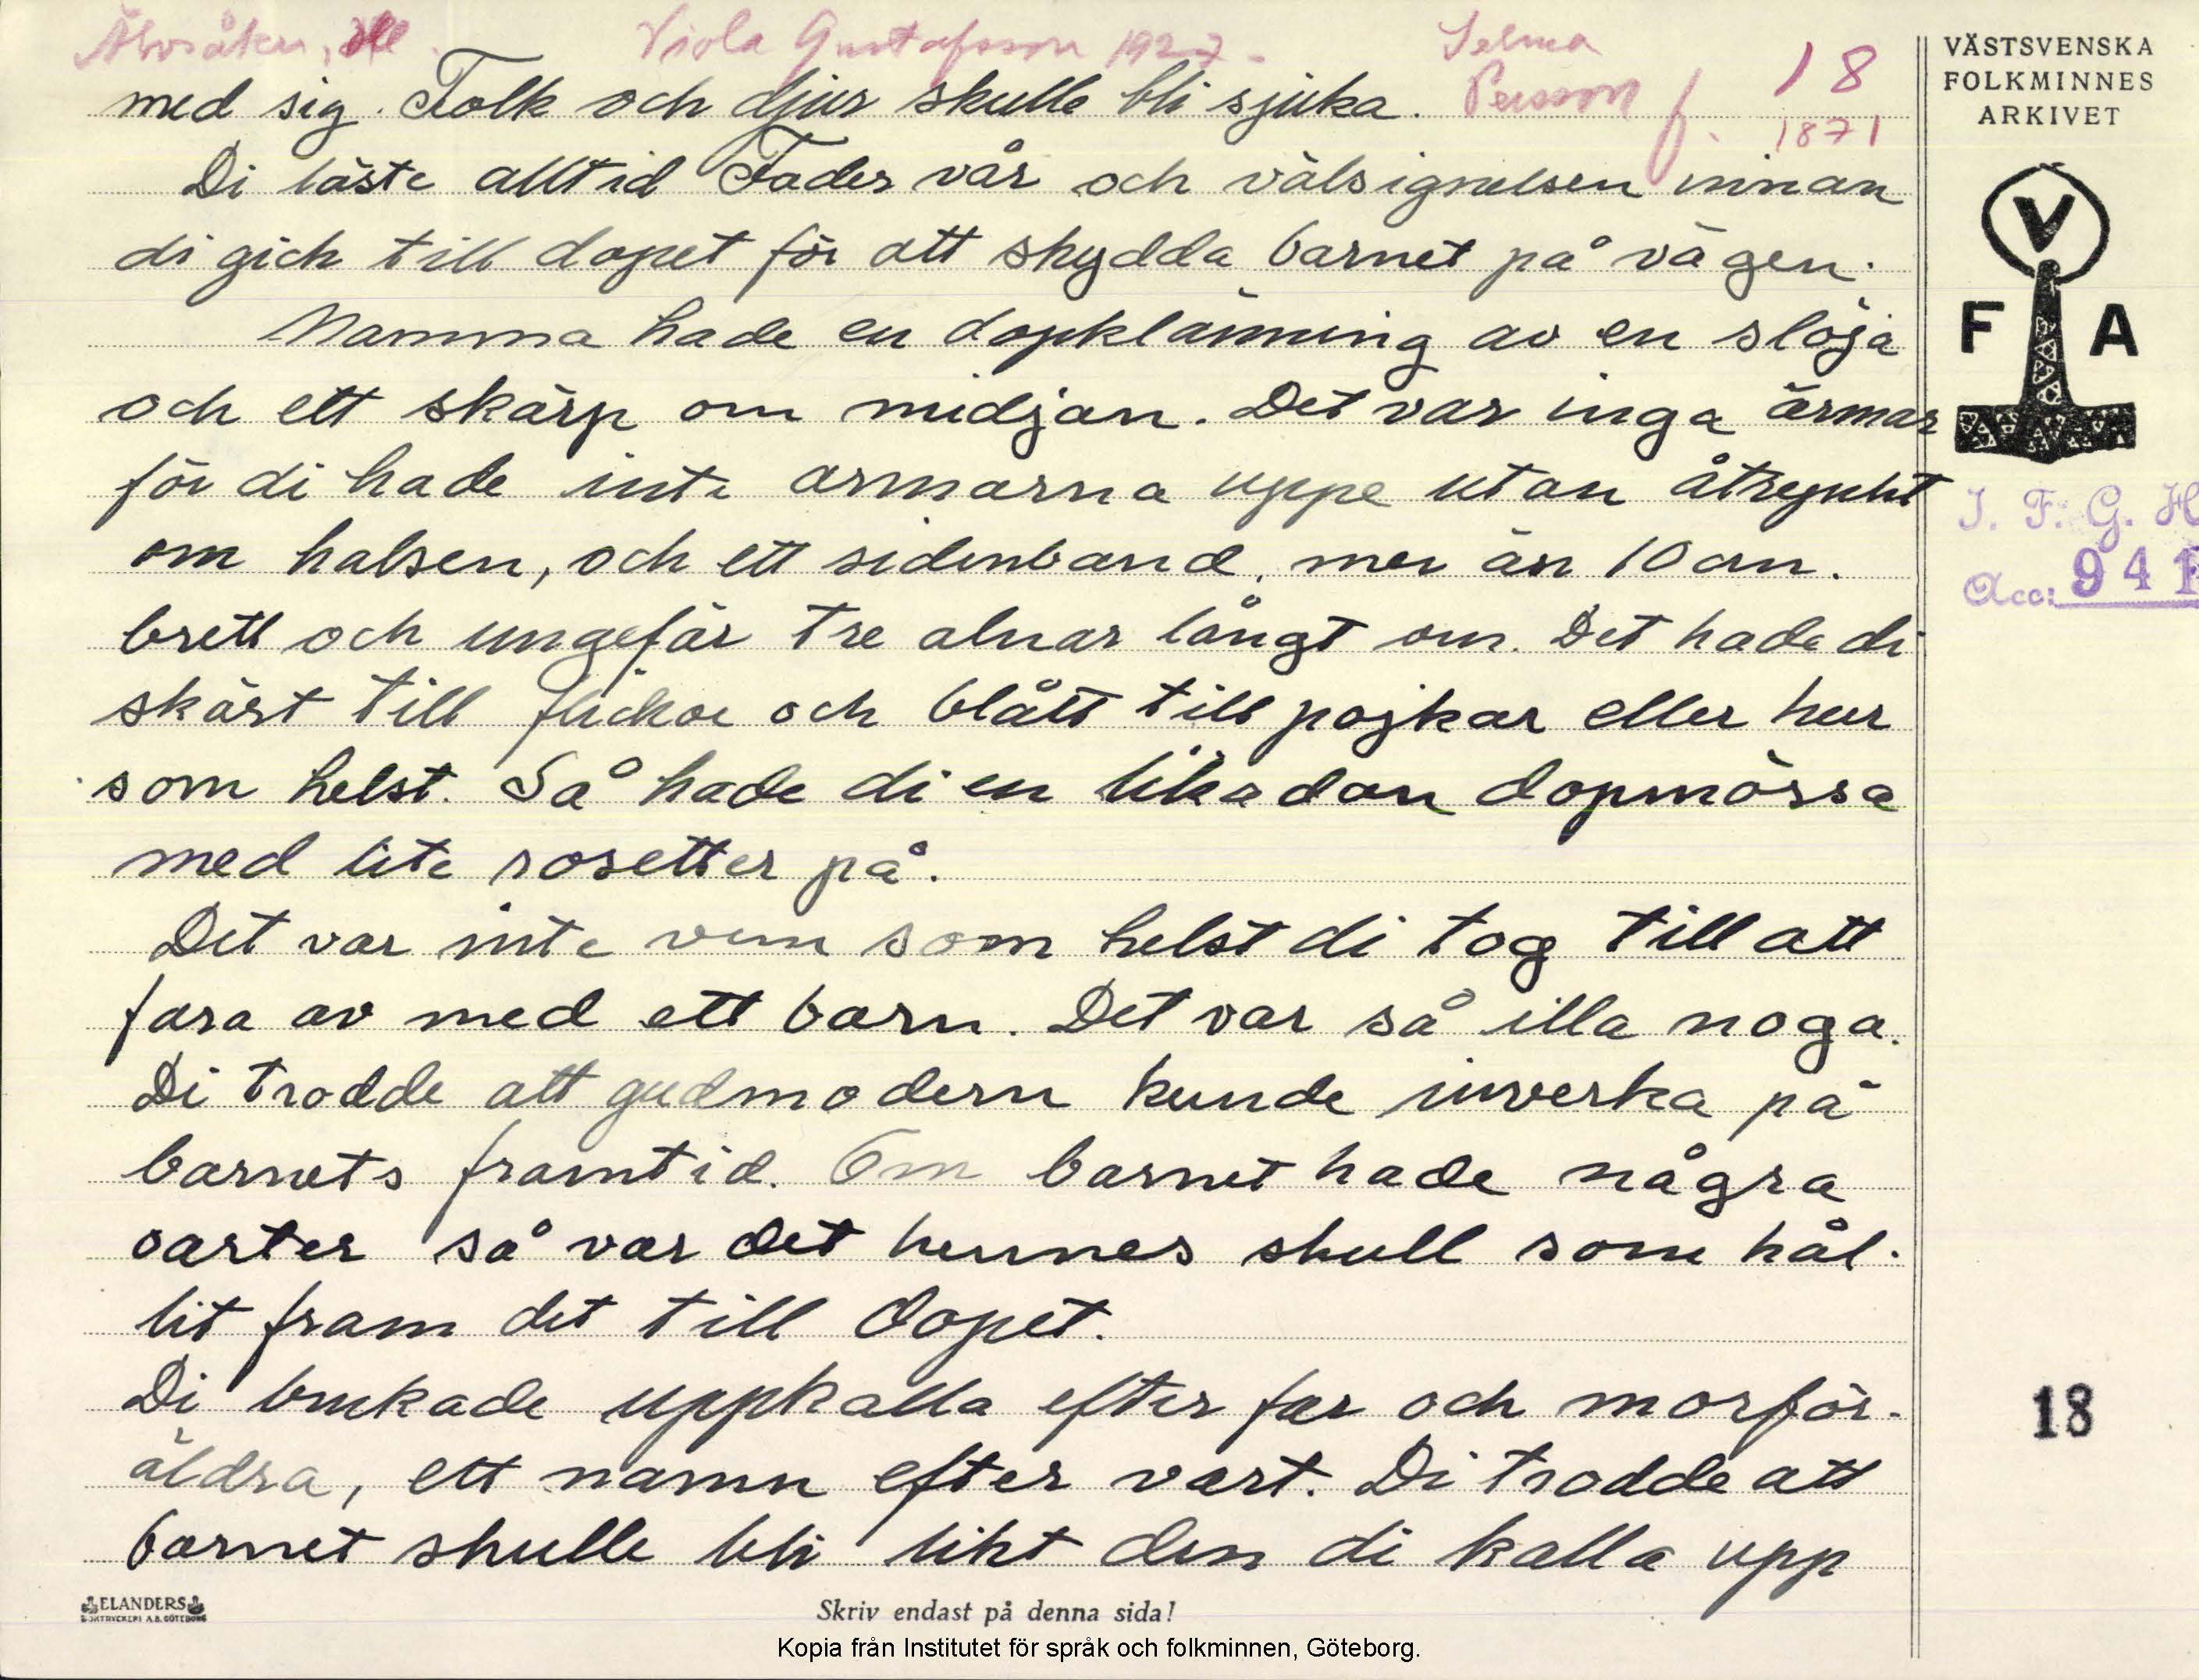 Älvsåker, Hll. Viola Gustafsson 1927. Selma
Persson f. 18
1871
VÄSTSVENSKA
FOLKMINNES
ARKIVET
med sig. Folk och djur skulle bli sjuka.
Di läste alltid Fader vår och välsignelsen innan
di gick till dopet för att skydda barnet på vägen.
Mamma hade en dopklänning av en slöja
och ett skärp om midjan. Det var inga ärmar
för di hade inte armarna uppe utan åtrynkt
om halsen, och ett sidenband, mer än 10 cm.
brett och ungefär tre alnar långt om. Det hade di
skärt till flickor och blått till pojkar eller hur
som helst. Så hade di en likadan dopmössa
med lite rosetter på.
Det var inte vem som helst di tog till att
fara av med ett barn. Det var så illa noga.
Di trodde att gudmodern kunde inverka på
barnets framtid. Om barnet hade några
oarter så var det hennes skull som hål-
lit fram det till dopet.
Di brukade uppkalla efter far och morför-
äldra, ett namn efter vart. Di trodde att
barnet skulle bli likt den di kalla upp
V
F A
I. F. G. H
Acc: 941
18
ELANDERS
BOKTRYCKERI A.B. GÖTEBORG
Skriv endast på denna sida!
Kopia från Institutet för språk och folkminnen, Göteborg.